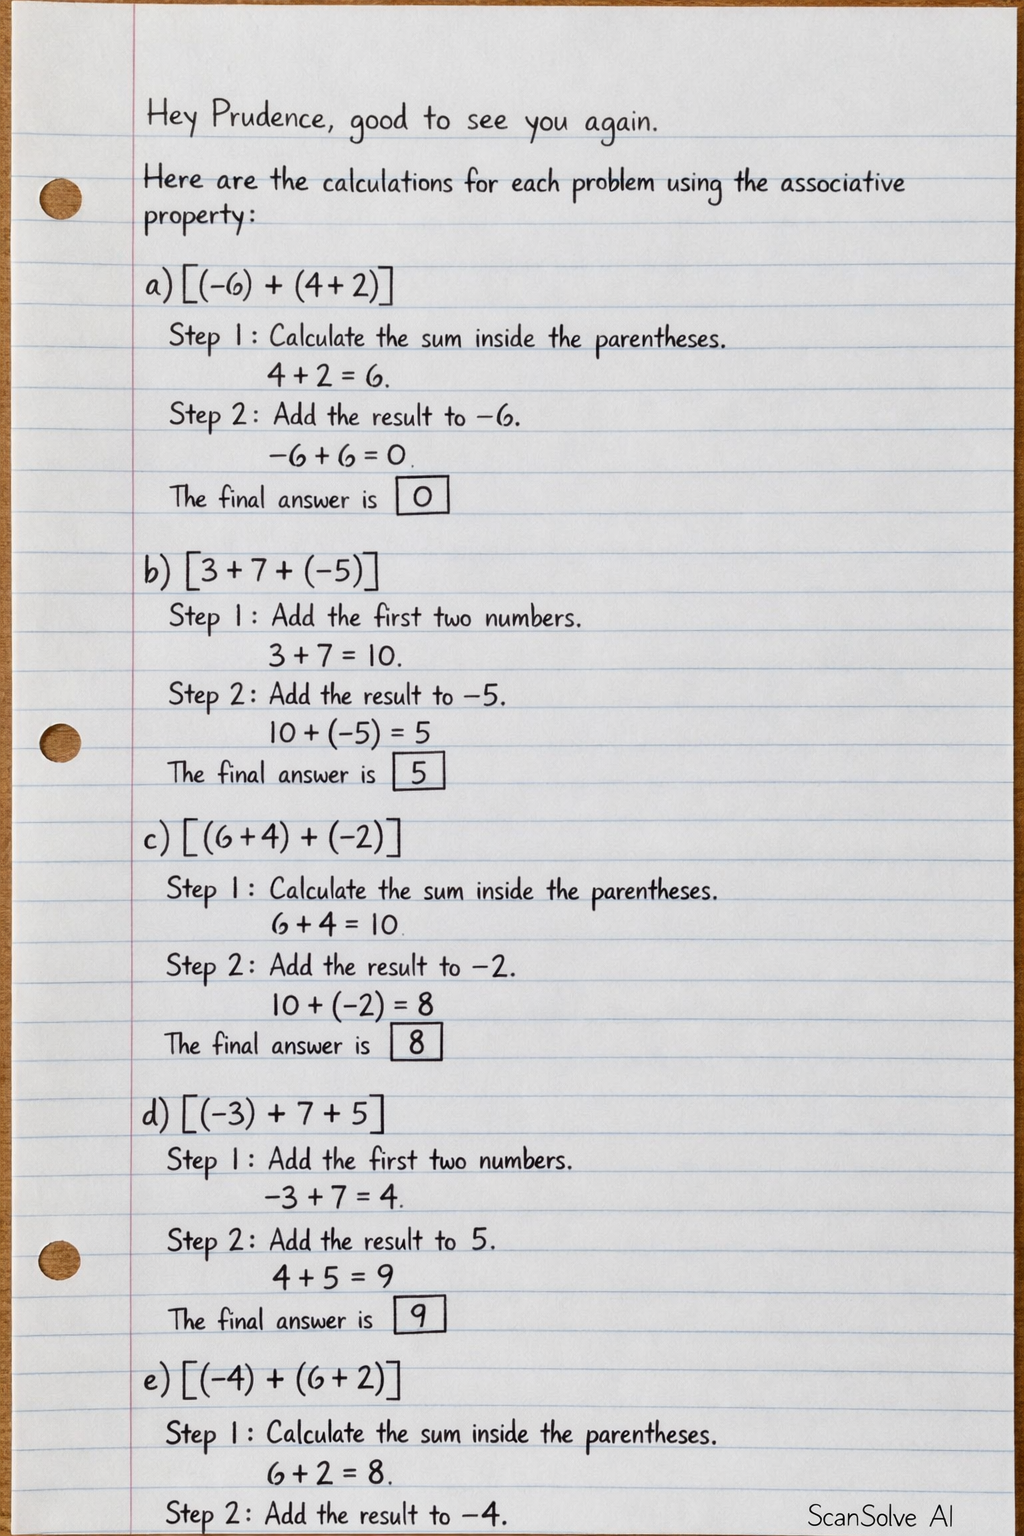 Hey Prudence, good to see you again.
Here are the calculations for each problem using the associative
property:
a) [(−6) + (4 + 2)]
Step 1: Calculate the sum inside the parentheses.
4 + 2 = 6.
Step 2: Add the result to −6.
−6 + 6 = 0.
The final answer is 0
b) [3 + 7 + (−5)]
Step 1: Add the first two numbers.
3 + 7 = 10.
Step 2: Add the result to −5.
10 + (−5) = 5
The final answer is 5
c) [(6 + 4) + (−2)]
Step 1: Calculate the sum inside the parentheses.
6 + 4 = 10.
Step 2: Add the result to −2.
10 + (−2) = 8
The final answer is 8
d) [(−3) + 7 + 5]
Step 1: Add the first two numbers.
−3 + 7 = 4.
Step 2: Add the result to 5.
4 + 5 = 9
The final answer is 9
e) [(−4) + (6 + 2)]
Step 1: Calculate the sum inside the parentheses.
6 + 2 = 8.
Step 2: Add the result to −4.
ScanSolve AI